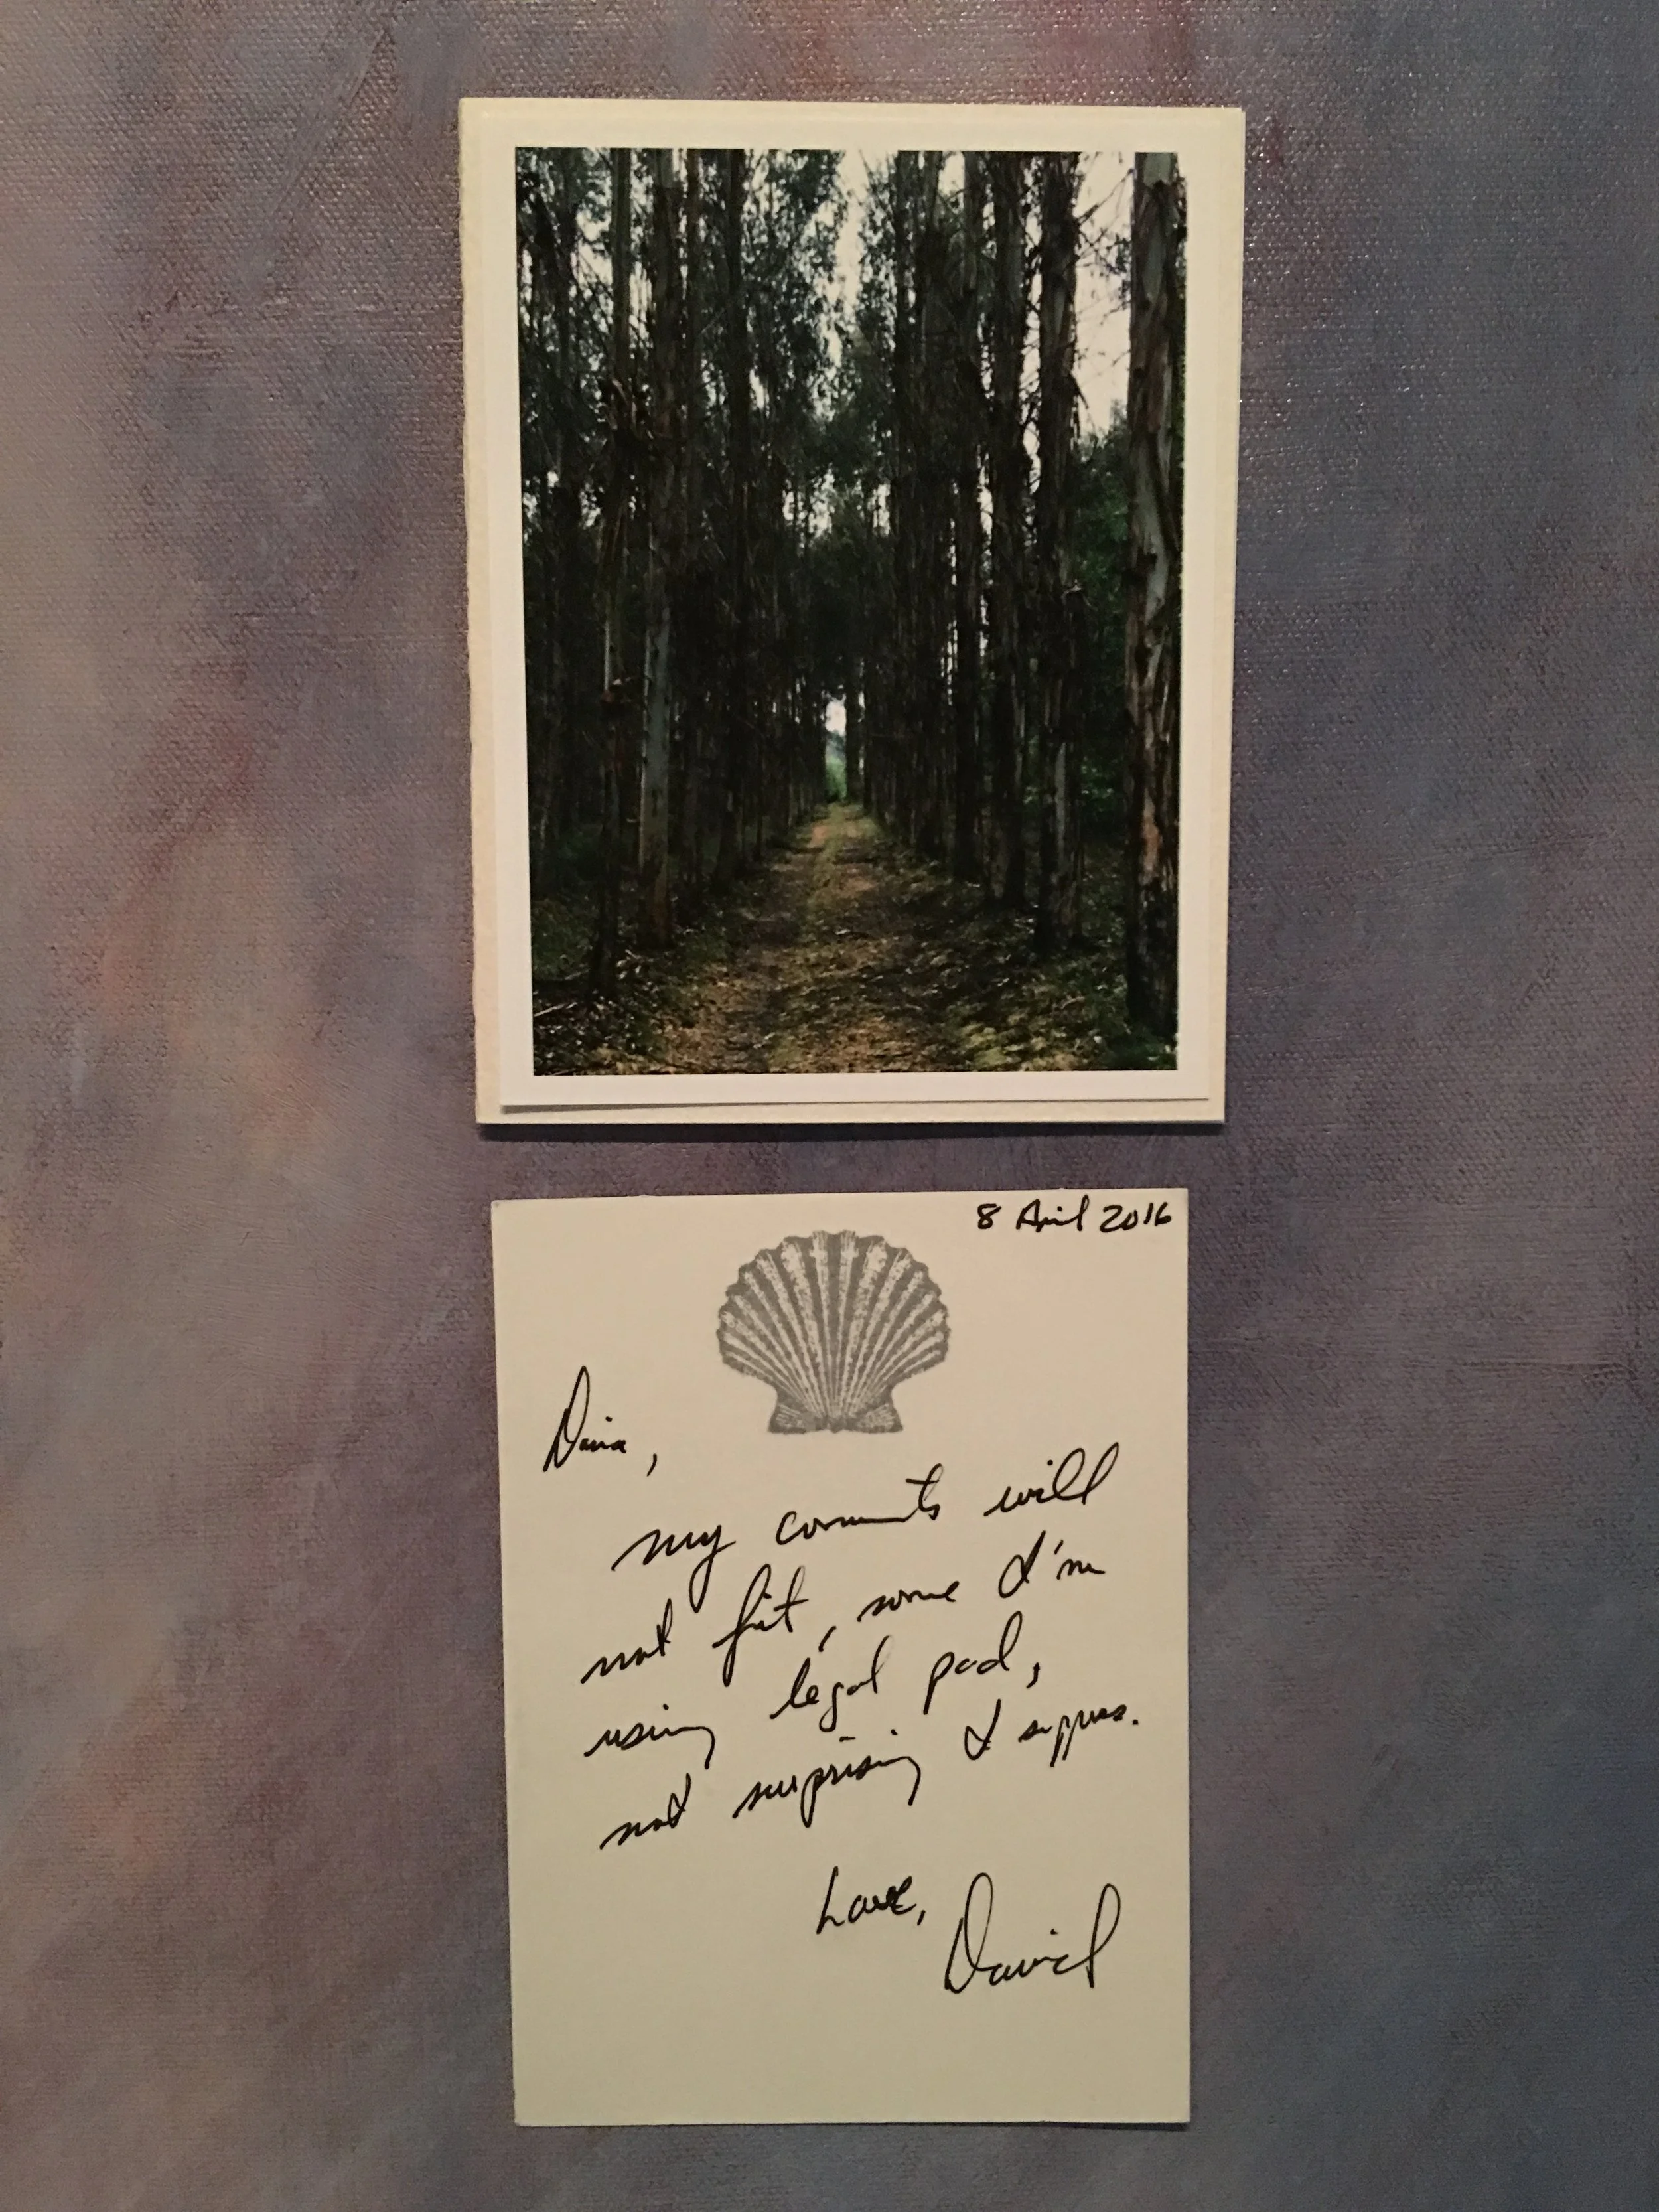 8 April 2016
Dina,
my comments will
not fit, some I'm
using legal pad,
not surprising I suppose.
Love,
David